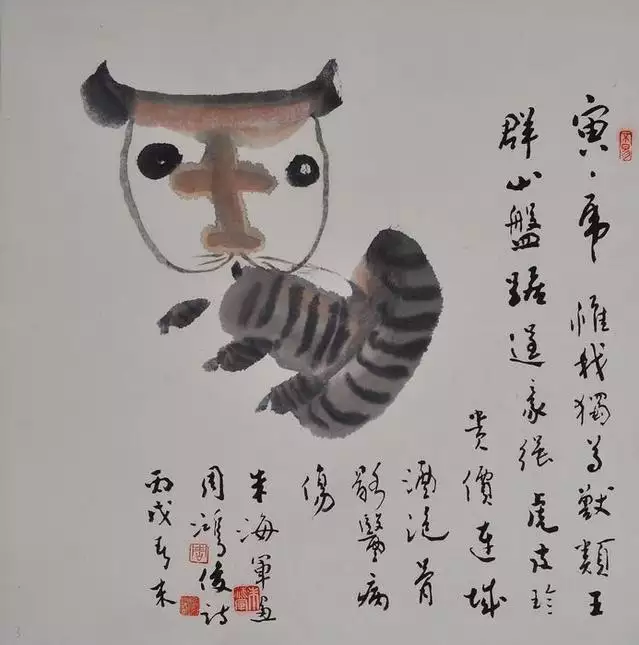 寅、虎 惟我獨尊獸類王
群山盤踞逞豪強 虎皮珍
貴價連城
酒泡骨
骸醫病
傷
朱海軍畫
周鴻俊詩
丙戌春末
3